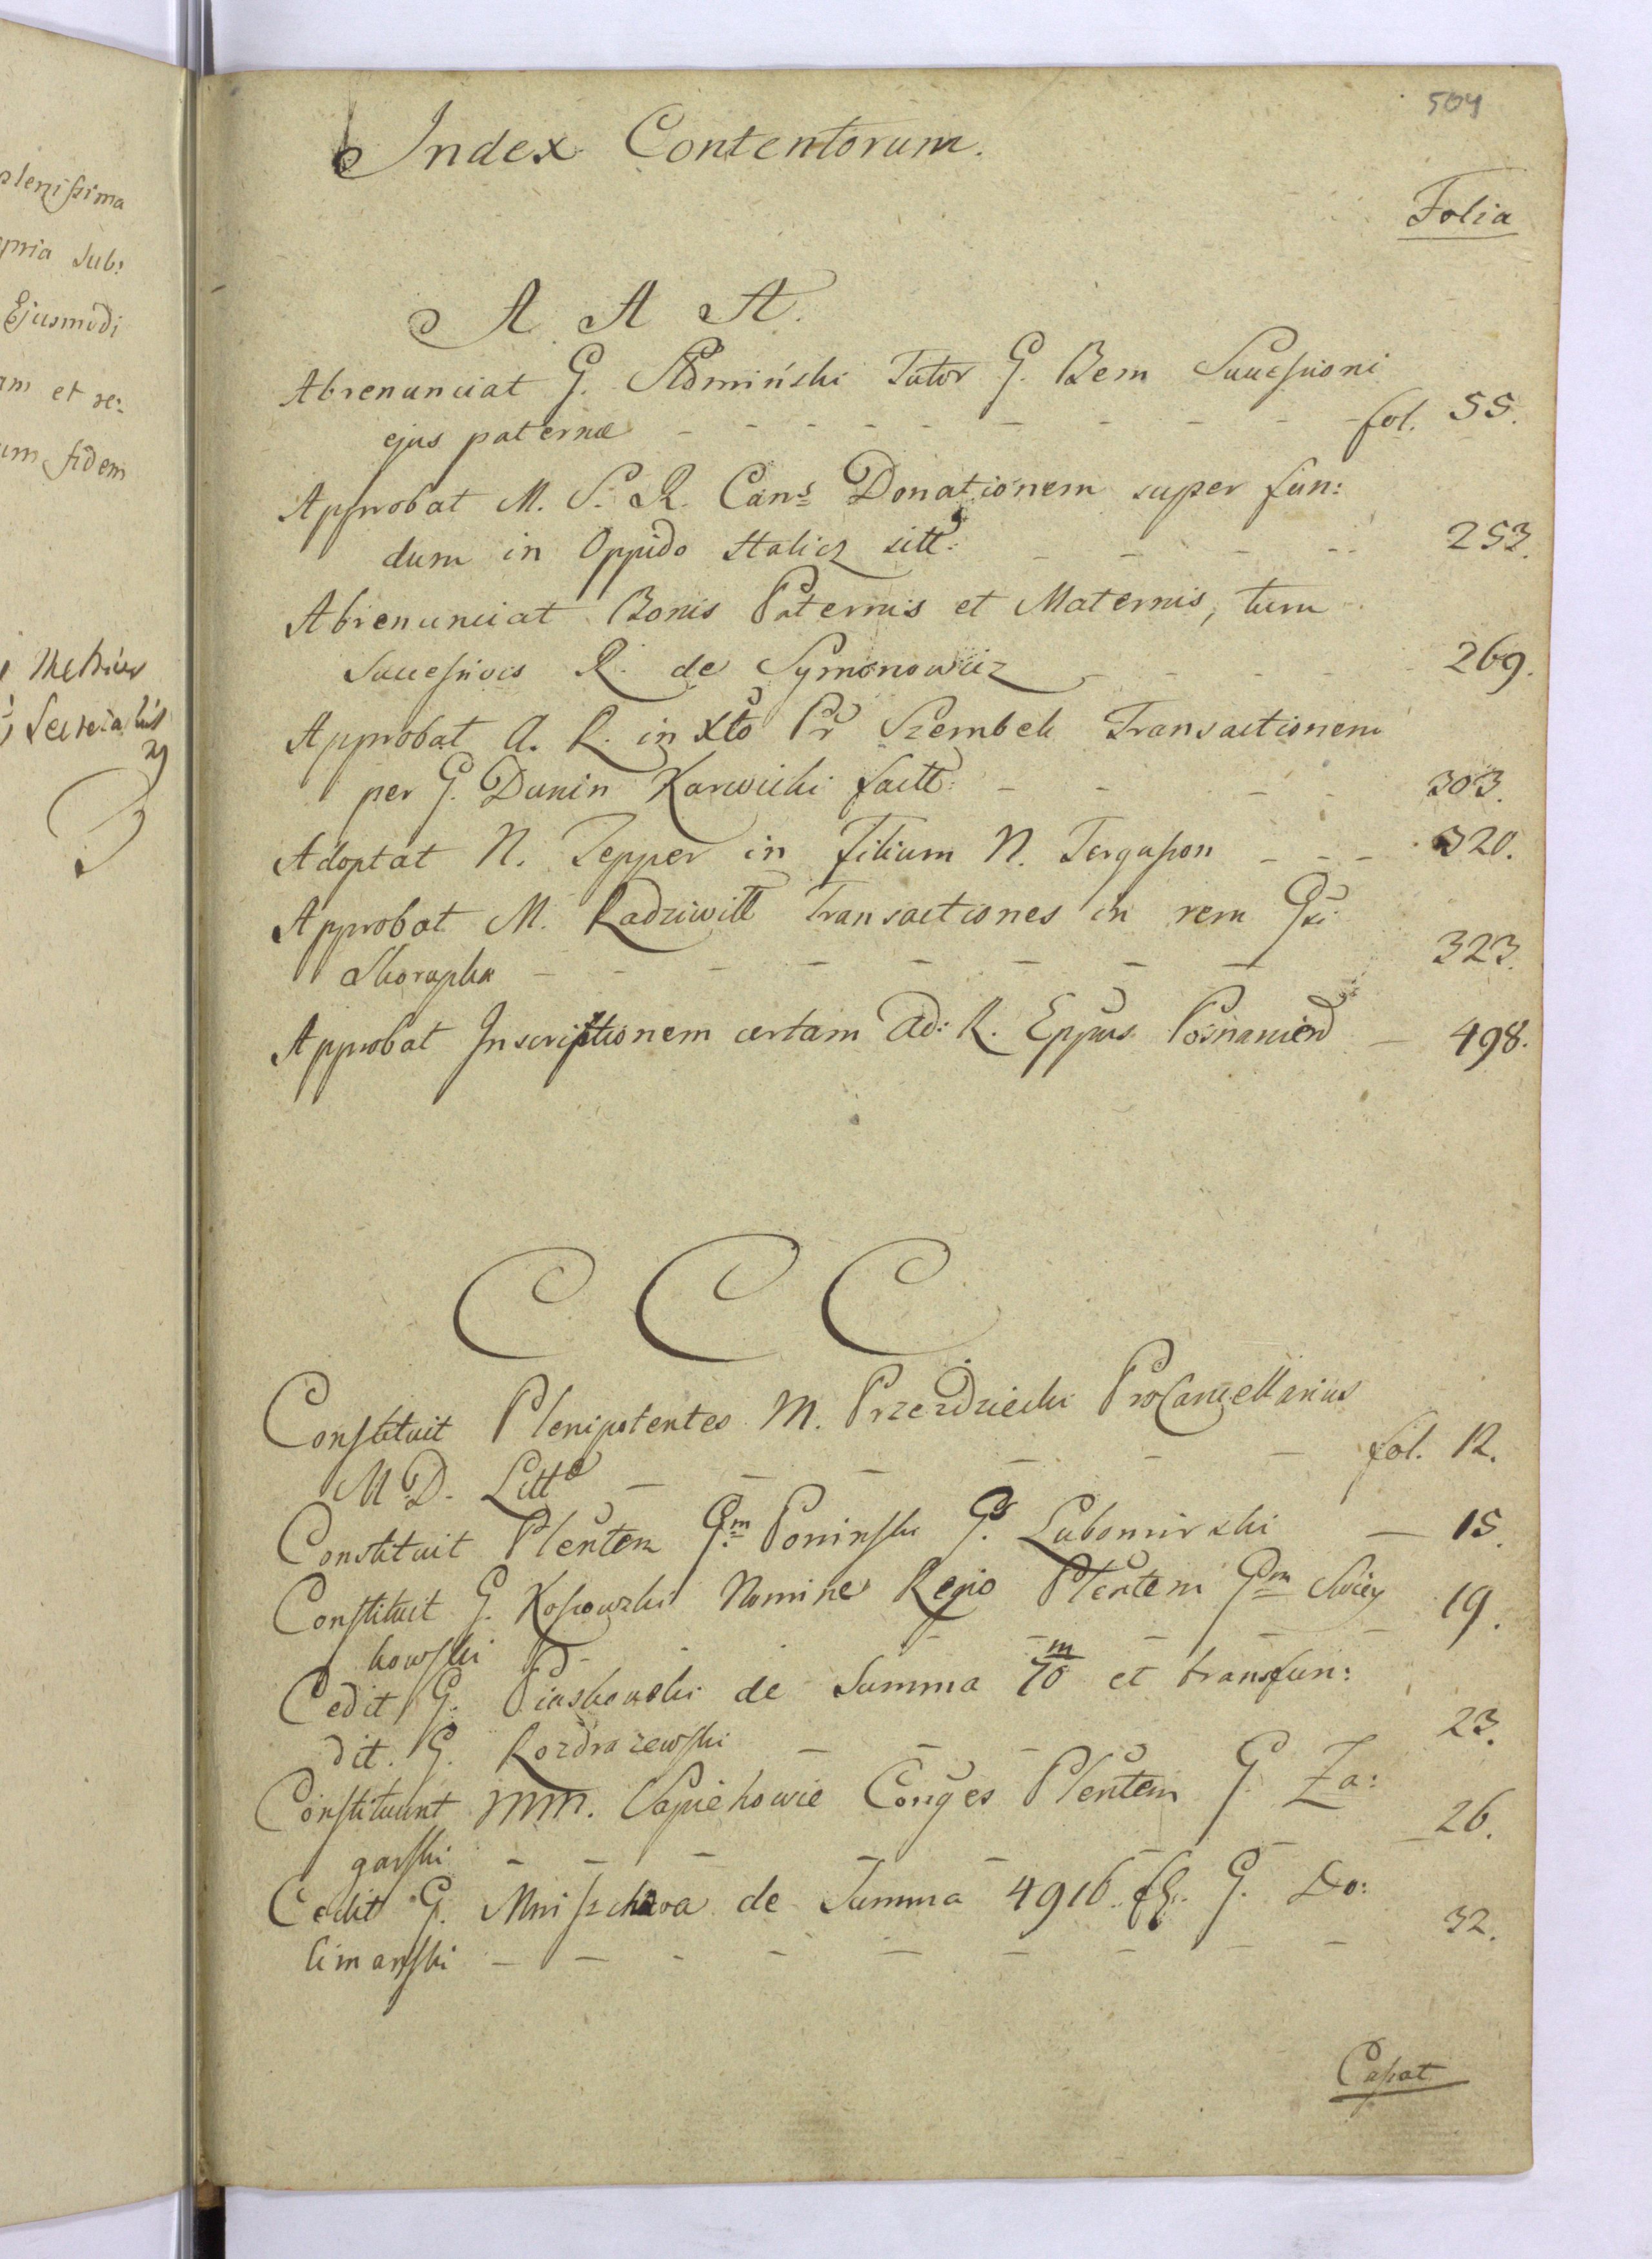 plenissima
pria Sub:
Ejusmodi
am et re:
um fidem
Metrices
504
Index Contentorum.
Folia
A A A.
Abrenunciat G. Słomiński Tutor G. Bem Successioni
ejus paternæ - - - - - - - - - fol. 55.
Approbat M. S. R. Canc Donationem super fun:
dum in Oppido Halicz sitt: - - - - 253.
Abrenunciat Bonis Paternis et Maternis, tum
Successivis R. de Symonowicz - - - - 269.
Approbat A. R. in Xto Pr Szembek Transactionem
per G. Dunin Karwicki factt: - - - - 303.
Adoptat N. Tepper in filium N. Ferguson - - - 320.
Approbat M. Radziwill Transactiones in rem Gsi
Skorupka - - - - - - - - 323.
Approbat Inscriptionem certam Ad: R. Eppus Posnanien - 498.
C C C
Constituit Plenipotentes M. Przezdziecki ProCancellarius
M D. Litt - - - - - - fol. 12.
Constituit Plentem Gm Poninski Gs Lubomirski - 15.
Constituit G. Kossowski Nomine Regio Plentem Gm Swięy
kowski - - - - - - - 19.
Cedit G. Piaskowski de Summa 70 m et transfun:
dit. G. Rozdrazewski - - - 23.
Constituunt MM. Sapiehowie Conjges Plentem G. Za:
gorski - - - - - - - 26.
Cedit G. Mniszchowa de Summa 4916 fl. G. Do:
limanski - - - - - - - - - 32.
Cassat